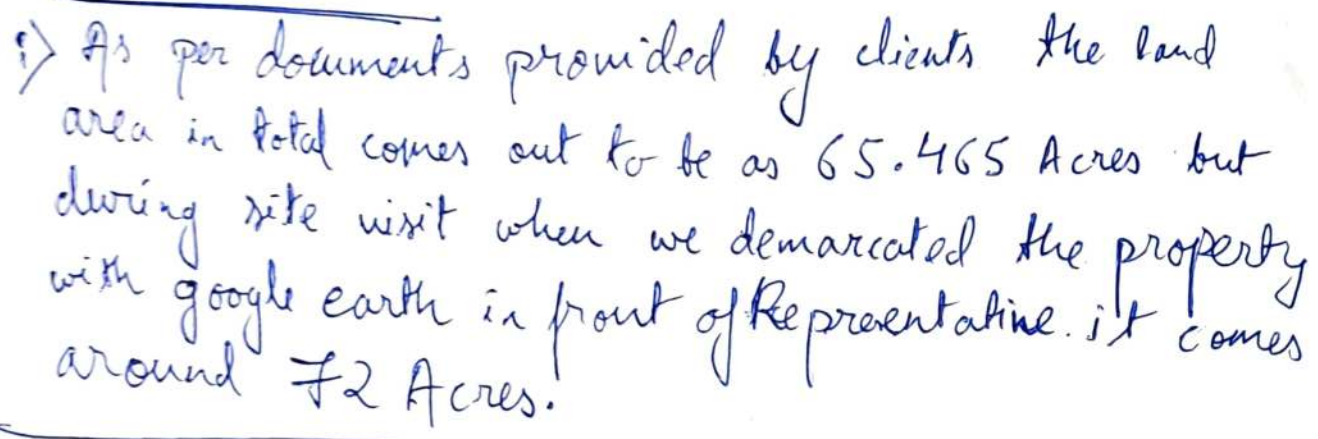 i) As per documents provided by clients the land
area in total comes out to be as 65.465 Acres but
during site visit when we demarcated the property
with google earth in front of Representative. it comes
around 72 Acres.